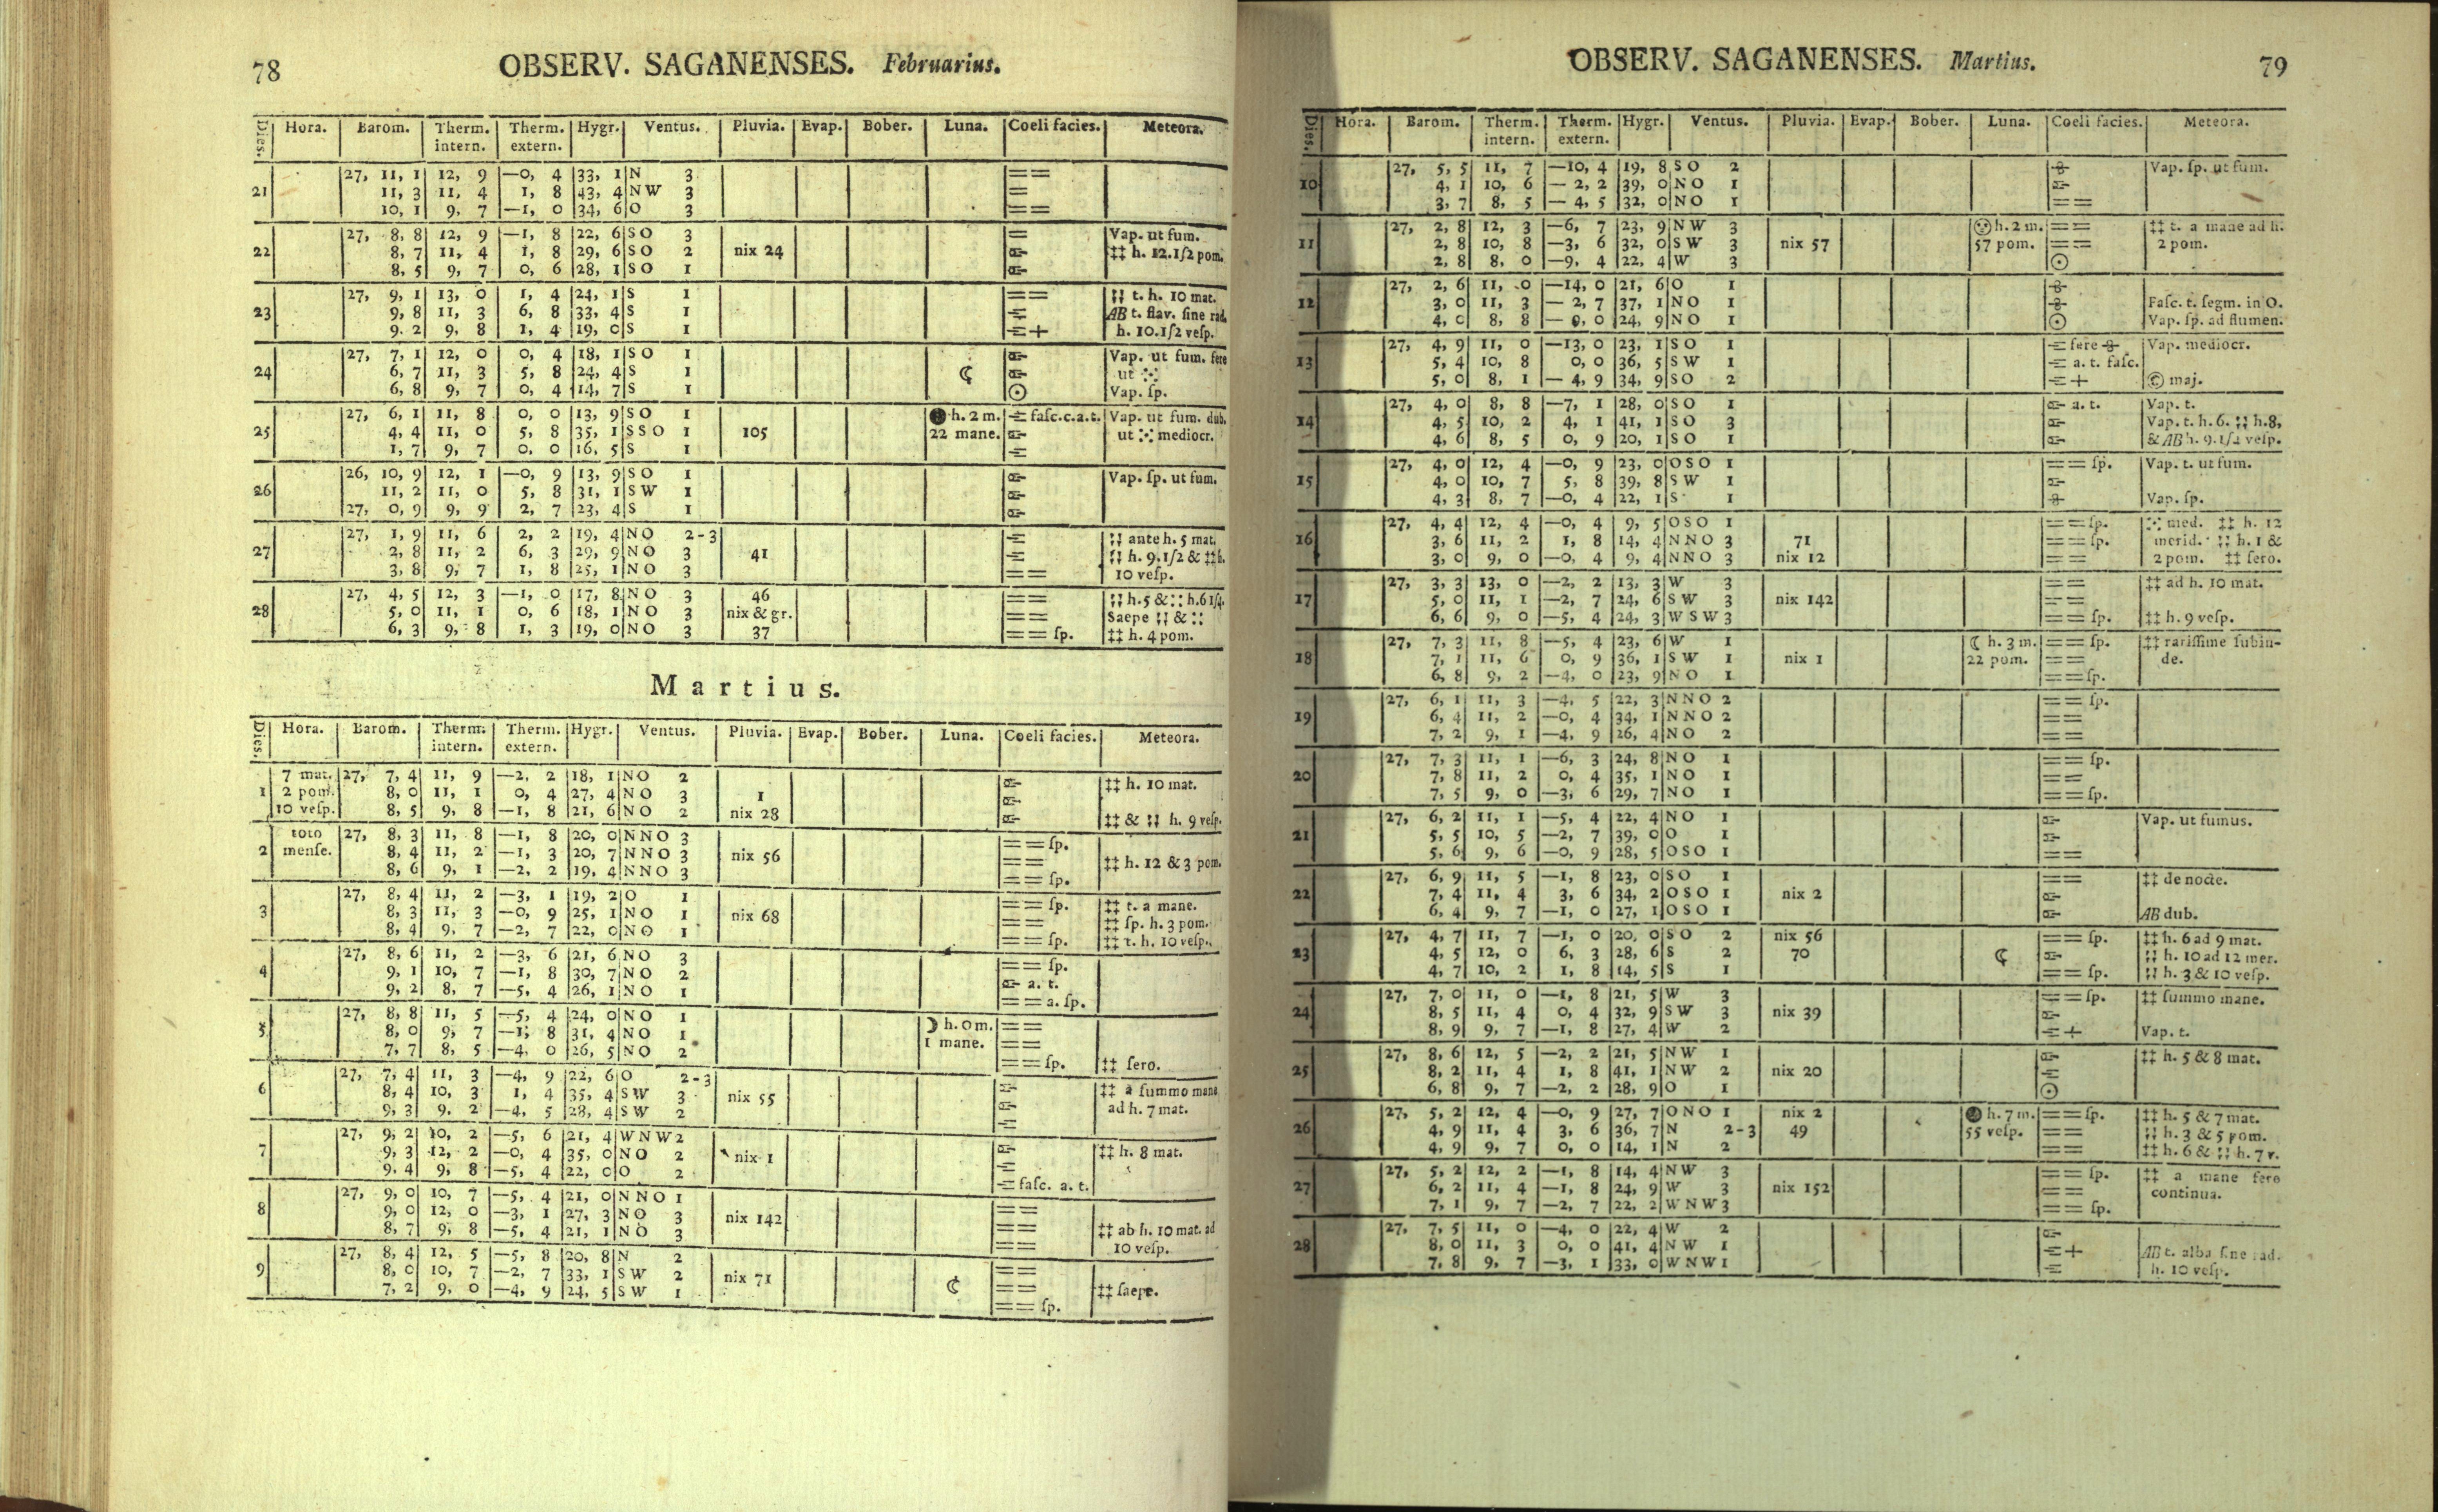 78 OBSERV. SAGANENSES. Februarius.
Dies. Hora. Barom. Therm. intern. Therm. extern. Hygr. Ventus. Pluvia. Evap. Bober. Luna. Coeli facies. Meteora.
27, 11, 1 12, 9 —0, 4 33, 1 N 3 ==
21 11, 3 11, 4 1, 8 43, 4 N W 3 =
10, 1 9, 7 —1, 0 34, 6 O 3 ==
27, 8, 8 12, 9 —1, 8 22, 6 S O 3 = Vap. ut fum.
22 8, 7 11, 4 1, 8 29, 6 S O 2 nix 24 ‡‡ h. 12.1/2 pom.
8, 5 9, 7 0, 6 28, 1 S O 1
27, 9, 1 13, 0 1, 4 24, 1 S 1 == t. h. 10 mat.
23 9, 8 11, 3 6, 8 33, 4 S 1 AB t. flav. ſine rad.
9. 2 9, 8 1, 4 19, 0 S 1 + h. 10.1/2 veſp.
27, 7, 1 12, 0 0, 4 18, 1 S O 1 Vap. ut fum. fere
24 6, 7 11, 3 5, 8 24, 4 S 1 ☾ ut
6, 8 9, 7 0, 4 14, 7 S 1 ☉ Vap. ſp.
27, 6, 1 11, 8 0, 0 13, 9 S O 1 ● h. 2 m. faſc.c.a.t. Vap. ut fum. dub.
25 4, 4 11, 0 5, 8 35, 1 S S O 1 105 22 mane. ut mediocr.
1, 7 9, 7 0, 0 16, 5 S 1
26, 10, 9 12, 1 —0, 9 13, 9 S O 1 Vap. ſp. ut fum.
26 11, 2 11, 0 5, 8 31, 1 S W 1
27, 0, 9 9, 9 2, 7 23, 4 S 1
27, 1, 9 11, 6 2, 2 19, 4 N O 2-3 ante h. 5 mat.
27 2, 8 11, 2 6, 3 29, 9 N O 3 41 h. 9.1/2 & ‡‡ h.
3, 8 9, 7 1, 8 25, 1 N O 3 == 10 veſp.
27, 4, 5 12, 3 —1, 0 17, 8 N O 3 46 == h.5 & h.6 1/4.
28 5, 0 11, 1 0, 6 18, 1 N O 3 nix & gr. == Saepe &
6, 3 9, 8 1, 3 19, 0 N O 3 37 == ſp. ‡‡ h. 4 pom.
Martius.
Dies. Hora. Barom. Therm. intern. Therm. extern. Hygr. Ventus. Pluvia. Evap. Bober. Luna. Coeli facies. Meteora.
7 mat. 27, 7, 4 11, 9 —2, 2 18, 1 N O 2 ‡‡ h. 10 mat.
1 2 pom. 8, 0 11, 1 0, 4 27, 4 N O 3 1
10 veſp. 8, 5 9, 8 —1, 8 21, 6 N O 2 nix 28 ‡‡ & h. 9 veſp.
toto 27, 8, 3 11, 8 —1, 8 20, 0 N N O 3 == ſp.
2 menſe. 8, 4 11, 2 —1, 3 20, 7 N N O 3 nix 56 == ‡‡ h. 12 & 3 pom.
8, 6 9, 1 —2, 2 19, 4 N N O 3 == ſp.
27, 8, 4 11, 2 —3, 1 19, 2 O 1 == ſp. ‡‡ t. a mane.
3 8, 3 11, 3 —0, 9 25, 1 N O 1 nix 68 == ‡‡ ſp. h. 3 pom.
8, 4 9, 7 —2, 7 22, 0 N O 1 == ſp. ‡‡ t. h. 10 veſp.
27, 8, 6 11, 2 —3, 6 21, 6 N O 3 == ſp.
4 9, 1 10, 7 —1, 8 30, 7 N O 2 a. t.
9, 2 8, 7 —5, 4 26, 1 N O 1 == a. ſp.
27, 8, 8 11, 5 —5, 4 24, 0 N O 1 ☽ h. 0 m. ==
5 8, 0 9, 7 —1, 8 31, 4 N O 1 1 mane. ==
7, 7 8, 5 —4, 0 26, 5 N O 2 == ſp. ‡‡ ſero.
27, 7, 4 11, 3 —4, 9 22, 6 O 2-3 ‡‡ a ſummo mane
6 8, 4 10, 3 1, 4 35, 4 S W 3 nix 55 ad h. 7 mat.
9, 3 9, 2 —4, 5 28, 4 S W 2
27, 9, 2 10, 2 —5, 6 21, 4 W N W 2 ‡‡ h. 8 mat.
7 9, 3 12, 2 —0, 4 35, 0 N O 2 nix 1
9, 4 9, 8 —5, 4 22, 0 O 2 faſc. a. t.
27, 9, 0 10, 7 —5, 4 21, 0 N N O 1 ==
8 9, 0 12, 0 —3, 1 27, 3 N O 3 nix 142 == ‡‡ ab h. 10 mat. ad
8, 7 9, 8 —5, 4 21, 1 N O 3 == 10 veſp.
27, 8, 4 12, 5 —5, 8 20, 8 N 2 ==
9 8, 0 10, 7 —2, 7 33, 1 S W 2 nix 71 ☾ == ‡‡ ſaepe.
7, 2 9, 0 —4, 9 24, 5 S W 1 == ſp.
OBSERV. SAGANENSES. Martius. 79
Dies. Hora. Barom. Therm. intern. Therm. extern. Hygr. Ventus. Pluvia. Evap. Bober. Luna. Coeli facies. Meteora.
27, 5, 5 11, 7 —10, 4 19, 8 S O 2 Vap. ſp. ut fum.
10 4, 1 10, 6 —2, 2 39, 0 N O 1
3, 7 8, 5 —4, 5 32, 0 N O 1 ==
27, 2, 8 12, 3 —6, 7 23, 9 N W 3 h. 2 m. == ‡‡ t. a mane ad h.
11 2, 8 10, 8 —3, 6 32, 0 S W 3 nix 57 57 pom. == 2 pom.
2, 8 8, 0 —9, 4 22, 4 W 3 ☉
27, 2, 6 11, 0 —14, 0 21, 6 O 1
12 3, 0 11, 3 —2, 7 37, 1 N O 1 Faſc. t. ſegm. in O.
4, 0 8, 8 24, 9 N O 1 ☉ Vap. ſp. ad flumen.
27, 4, 9 11, 0 —13, 0 23, 1 S O 1 fere Vap. mediocr.
13 5, 4 10, 8 0, 0 36, 5 S W 1 a. t. faſc.
5, 0 8, 1 —4, 9 34, 9 S O 2 + © maj.
27, 4, 0 8, 8 —7, 1 28, 0 S O 1 a. t. Vap. t.
14 4, 5 10, 2 4, 1 41, 1 S O 3 Vap. t. h. 6. h.8,
4, 6 8, 5 0, 9 20, 1 S O 1 & AB h. 9.1/2 veſp.
27, 4, 0 12, 4 —0, 9 23, 0 O S O 1 == ſp. Vap. t. ut fum.
15 4, 0 10, 7 5, 8 39, 8 S W 1 ==
4, 3 8, 7 —0, 4 22, 1 S 1 Vap. ſp.
27, 4, 4 12, 4 —0, 4 9, 5 O S O 1 == ſp. med. ‡‡ h. 12
16 3, 6 11, 2 1, 8 14, 4 N N O 3 71 == ſp. merid. h. 1 &
3, 0 9, 0 —0, 4 9, 4 N N O 3 nix 12 == 2 pom. ‡‡ ſero.
27, 3, 3 13, 0 —2, 2 13, 3 W 3 == ‡‡ ad h. 10 mat.
17 5, 0 11, 1 —2, 7 24, 6 S W 3 nix 142 ==
6, 6 9, 0 —5, 4 24, 3 W S W 3 == ſp. ‡‡ h. 9 veſp.
27, 7, 3 11, 8 —5, 4 23, 6 W 1 ☾ h. 3 m. == ſp. ‡‡ rariſſime ſubin-
18 7, 1 11, 6 0, 9 36, 1 S W 1 nix 1 22 pom. == de.
6, 8 9, 2 —4, 0 23, 9 N O 1 == ſp.
27, 6, 1 11, 3 —4, 5 22, 3 N N O 2 == ſp.
19 6, 4 11, 2 —0, 4 34, 1 N N O 2 ==
7, 2 9, 1 —4, 9 26, 4 N O 2 ==
27, 7, 3 11, 1 —6, 3 24, 8 N O 1 == ſp.
20 7, 8 11, 2 0, 4 35, 1 N O 1 ==
7, 5 9, 0 —3, 6 29, 7 N O 1 == ſp.
27, 6, 2 11, 1 —5, 4 22, 4 N O 1 Vap. ut fumus.
21 5, 5 10, 5 —2, 7 39, 0 O 1
5, 6 9, 6 —0, 9 28, 5 O S O 1 ==
27, 6, 9 11, 5 —1, 8 23, 0 S O 1 == ‡‡ de nocte.
22 7, 4 11, 4 3, 6 34, 2 O S O 1 nix 2
6, 4 9, 7 —1, 0 27, 1 O S O 1 AB dub.
27, 4, 7 11, 7 —1, 0 20, 0 S O 2 nix 56 == ſp. ‡‡ h. 6 ad 9 mat.
23 4, 5 12, 0 6, 3 28, 6 S 2 70 ☾ h. 10 ad 12 mer.
4, 7 10, 2 1, 8 14, 5 S 1 == ſp. h. 3 & 10 veſp.
27, 7, 0 11, 0 —1, 8 21, 5 W 3 == ſp. ‡‡ ſummo mane.
24 8, 5 11, 4 0, 4 32, 9 S W 3 nix 39
8, 9 9, 7 —1, 8 27, 4 W 2 + Vap. t.
27, 8, 6 12, 5 —2, 2 21, 5 N W 1 ‡‡ h. 5 & 8 mat.
25 8, 2 11, 4 1, 8 41, 1 N W 2 nix 20
6, 8 9, 7 —2, 2 28, 9 O 1 ☉
27, 5, 2 12, 4 —0, 9 27, 7 O N O 1 nix 2 ● h. 7 m. == ſp. ‡‡ h. 5 & 7 mat.
26 4, 9 11, 4 3, 6 36, 7 N 2-3 49 55 veſp. == h. 3 & 5 pom.
4, 9 9, 7 0, 0 14, 1 N 2 == ‡‡ h. 6 & h. 7 v.
27, 5, 2 12, 2 —1, 8 14, 4 N W 3 == ſp. ‡‡ a mane fere
27 6, 2 11, 4 —1, 8 24, 9 W 3 nix 152 == continua.
7, 1 9, 7 —2, 7 22, 2 W N W 3 == ſp.
27, 7, 5 11, 0 —4, 0 22, 4 W 2
28 8, 0 11, 3 0, 0 41, 4 N W 1 + AB t. alba ſine rad.
7, 8 9, 7 —3, 1 33, 0 W N W 1 h. 10 veſp.